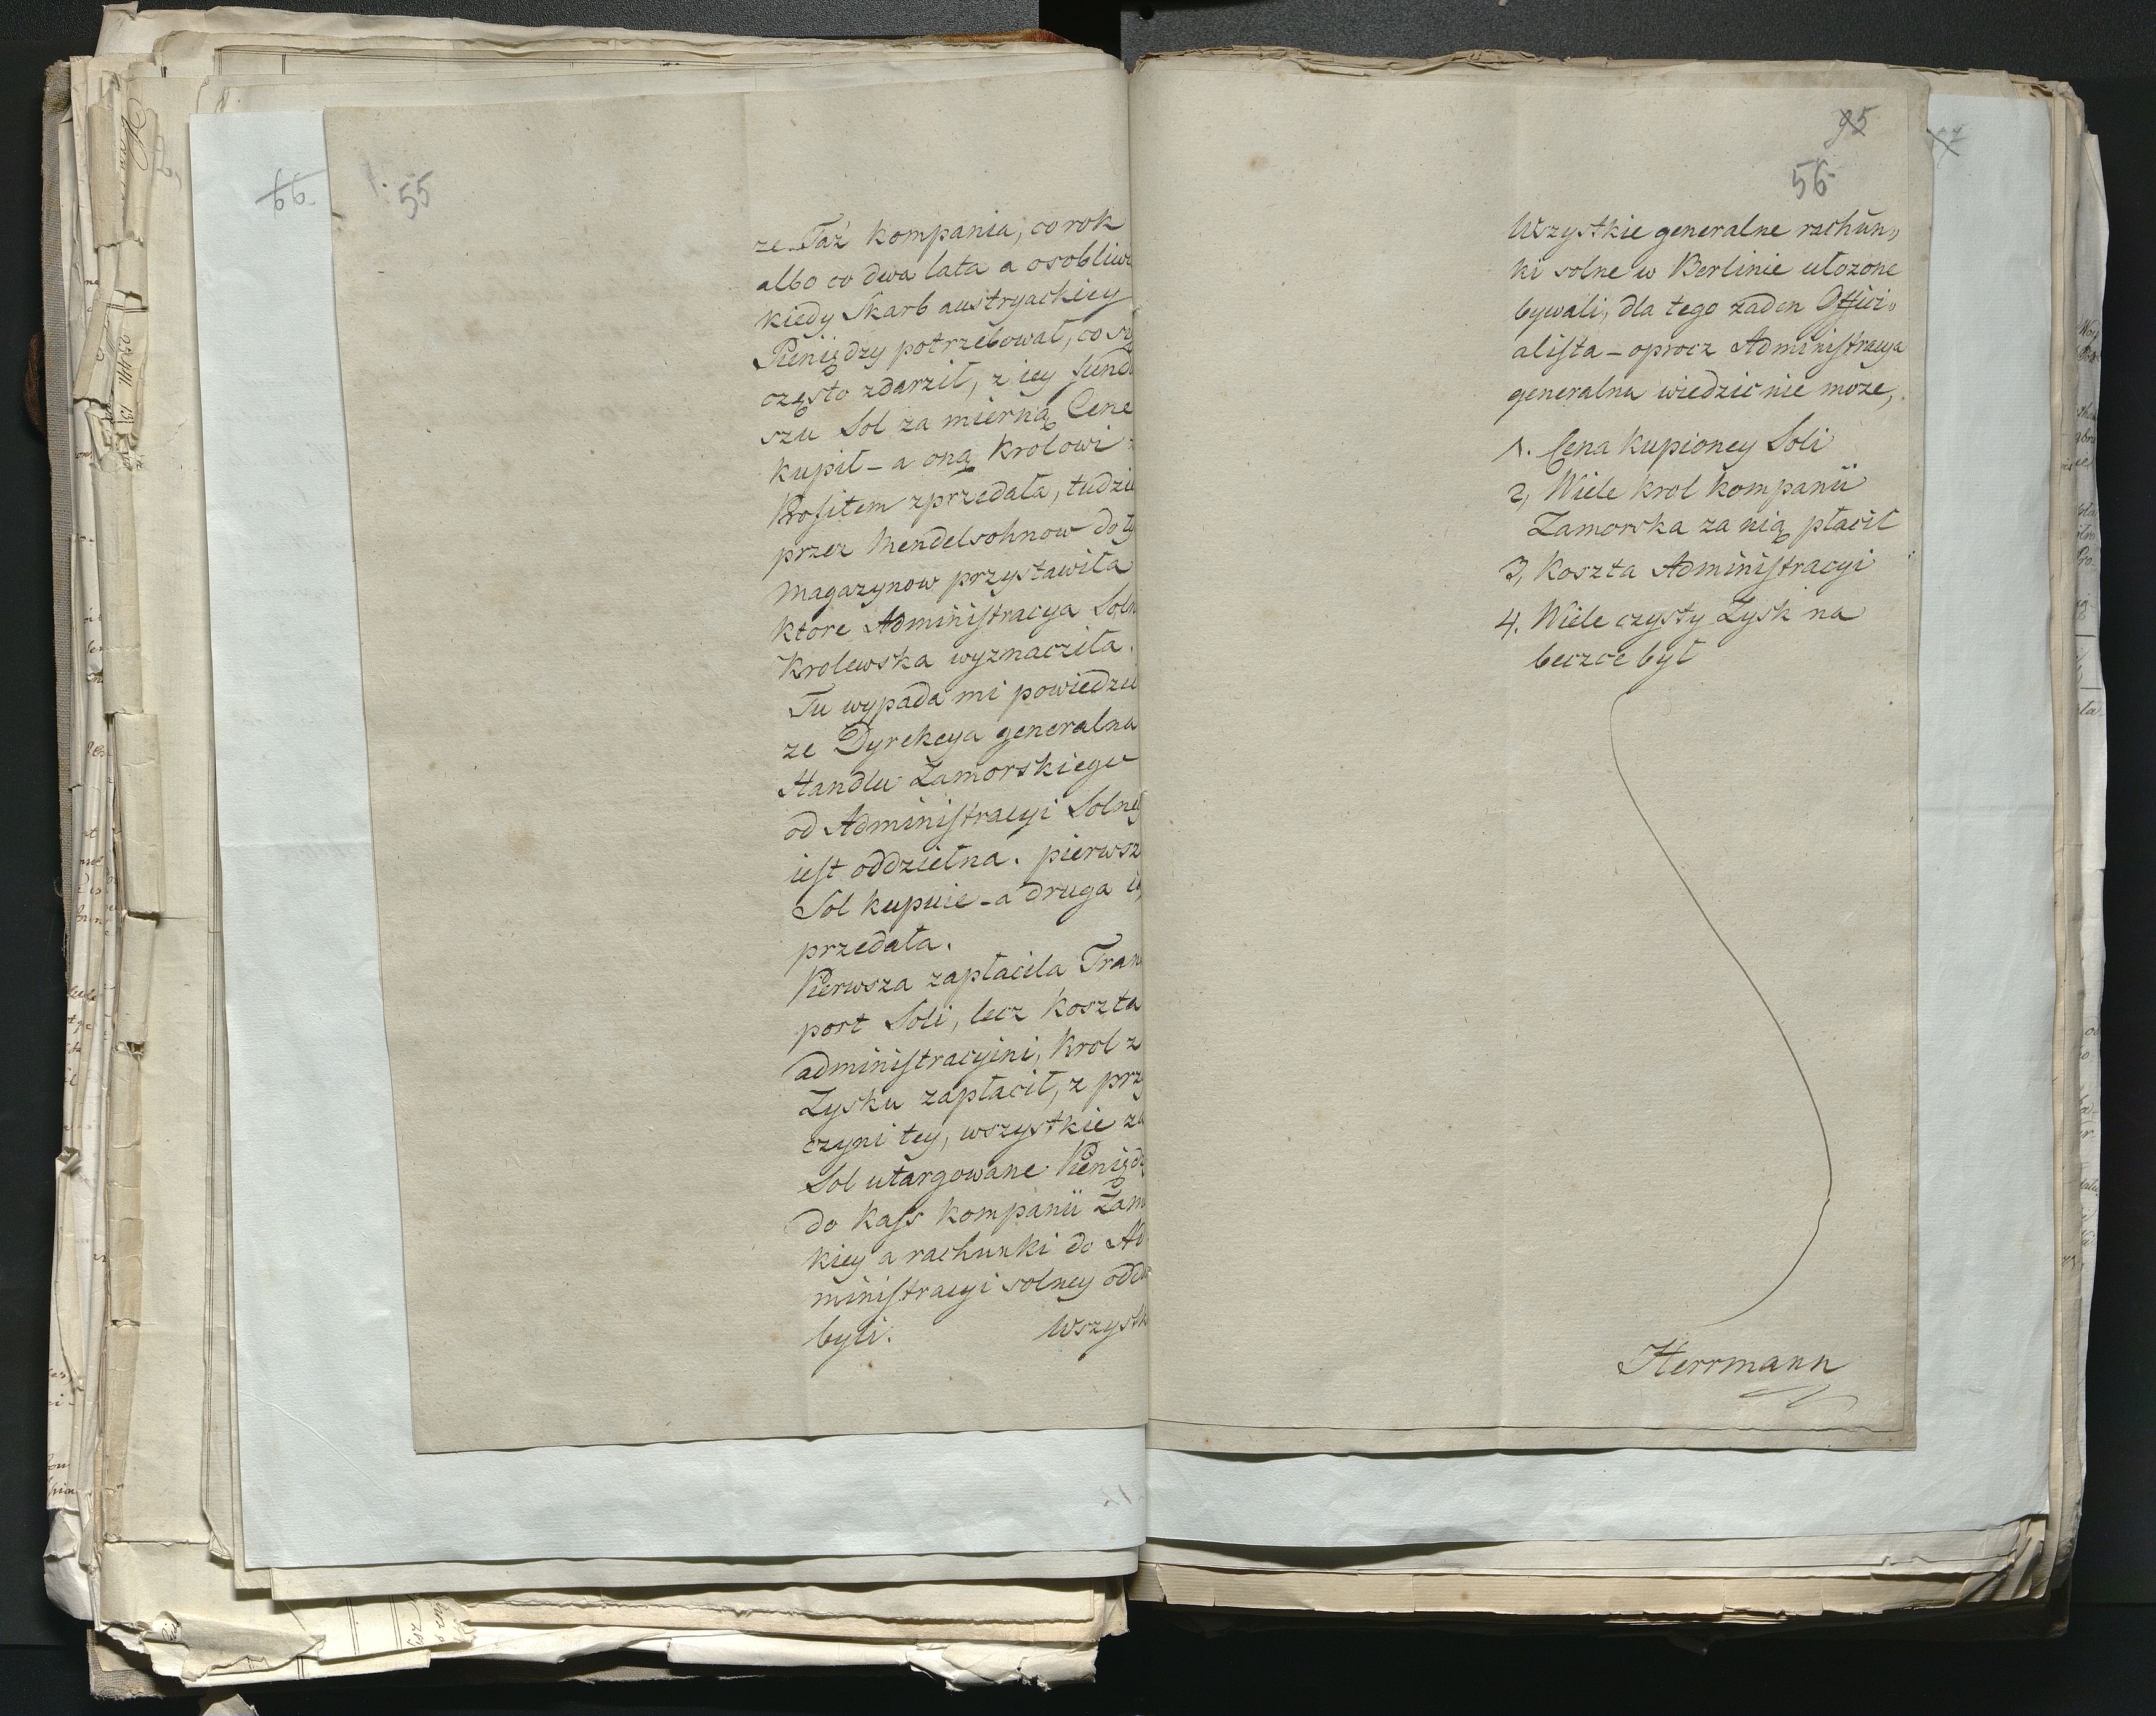 66
55
ze Taż kompania, co rok
albo co dwa lata a osobliwi
kiedy Skarb austryackiey
Pieniędzy potrzebował, co się
często zdarził, z iey fundu
szu Sol za mierną Cene
kupił – a oną Krolowi z
Profitem zprzedała, tudzie
przez Mendelsohnow do ty
magazynow przystawiła
ktore Administracya Soln
Krolewska wyznacziła.
Tu wypada mi powiedzie
ze Dyrekcya generalna
Handlu Zamorskiego
od Administracyi Solney
iest oddzielna. pierwsz
Sol kupuie – a druga ią
przedała.
Pierwsza zapłaciła Tran
port Soli, lecz koszta
administracyini, Krol z
Zysku zapłacił, z przy
czyni tey, wszystkie za
Sol utargowane Pieniądz
do Kass kompanii Zam
kiey a rachunki do Ad
ministracyi solney odda
byli.
Wszystk
95
56
Wszystkie generalne rachun,,
ki solne w Berlinie ułozone
bywali, dla tego zaden Offici,,
alista – oprocz Administracya
generalna wiedzić nie moze,
1. Cena kupioney Soli
2, Wiele Krol kompanii
Zamorska za nią płacił
3, koszta Administracyi
4. Wiele czysty Zysk na
beczce był
Herrmann